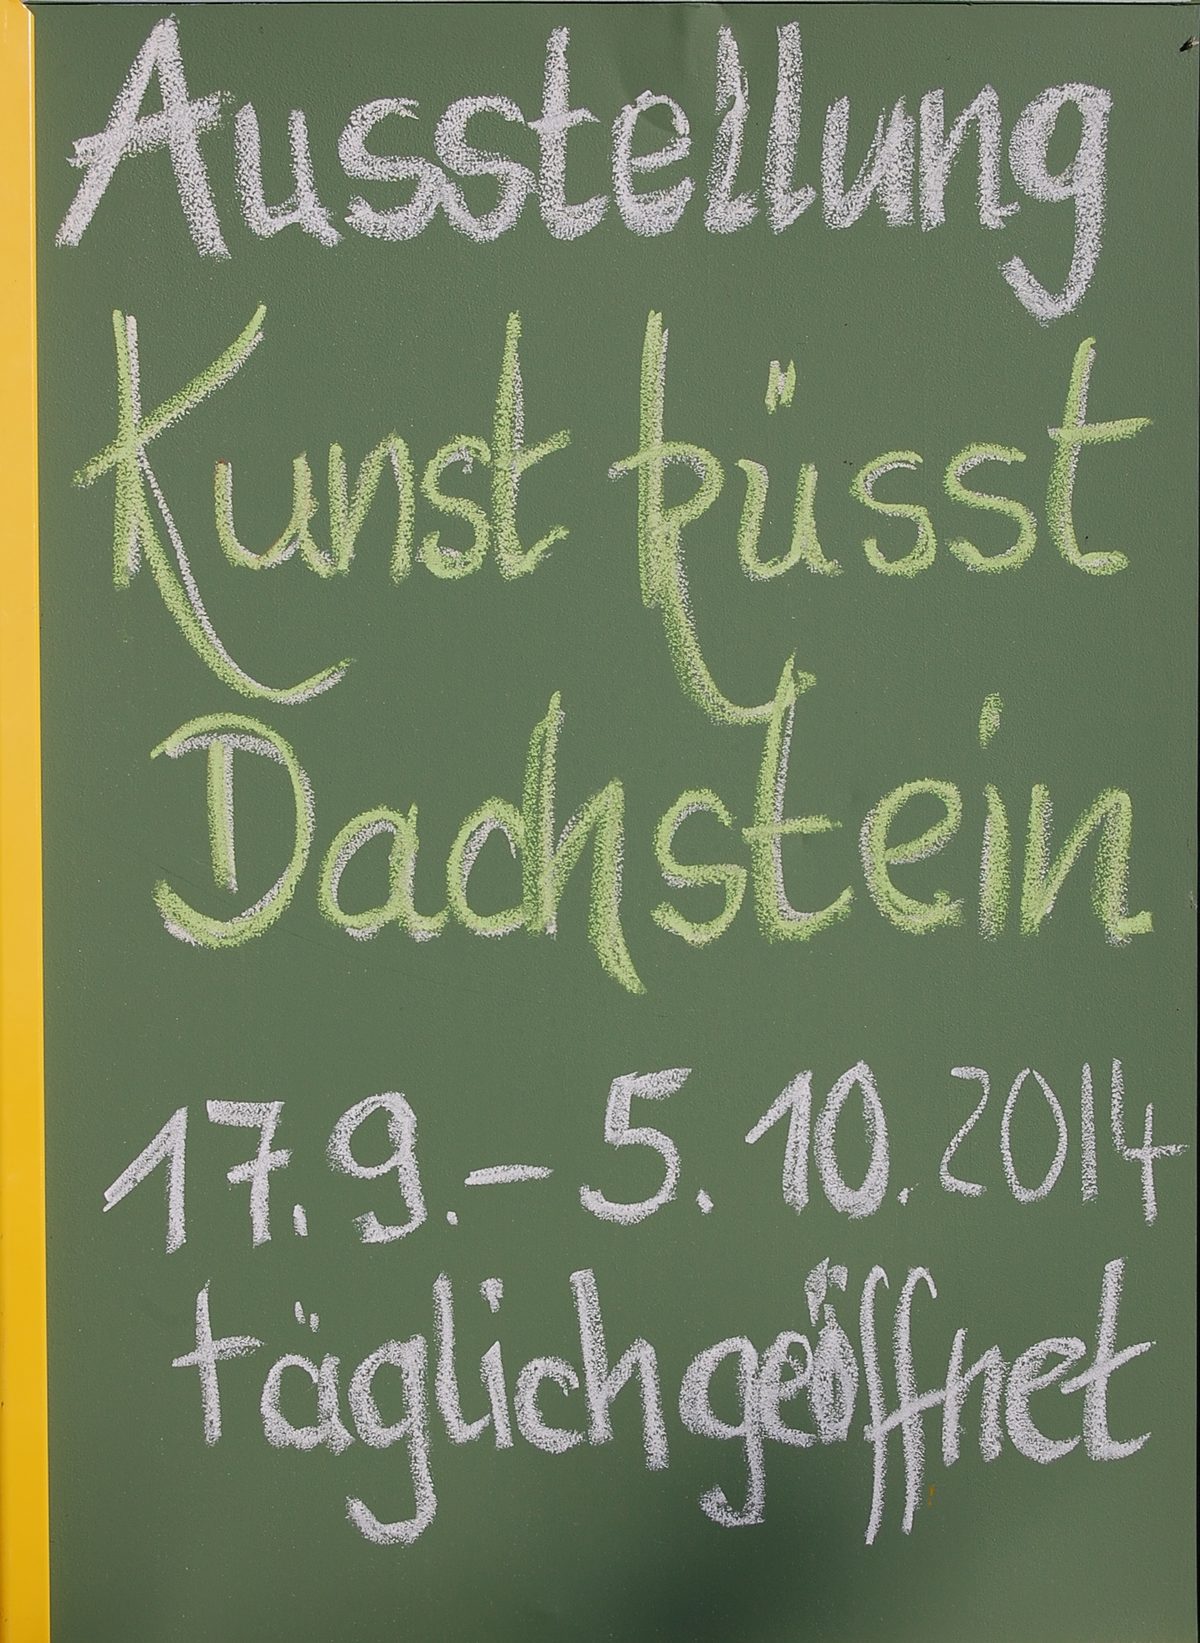 Ausstellung
Kunst küsst
Dachstein
17.9.-5.10.2014
täglich geöffnet